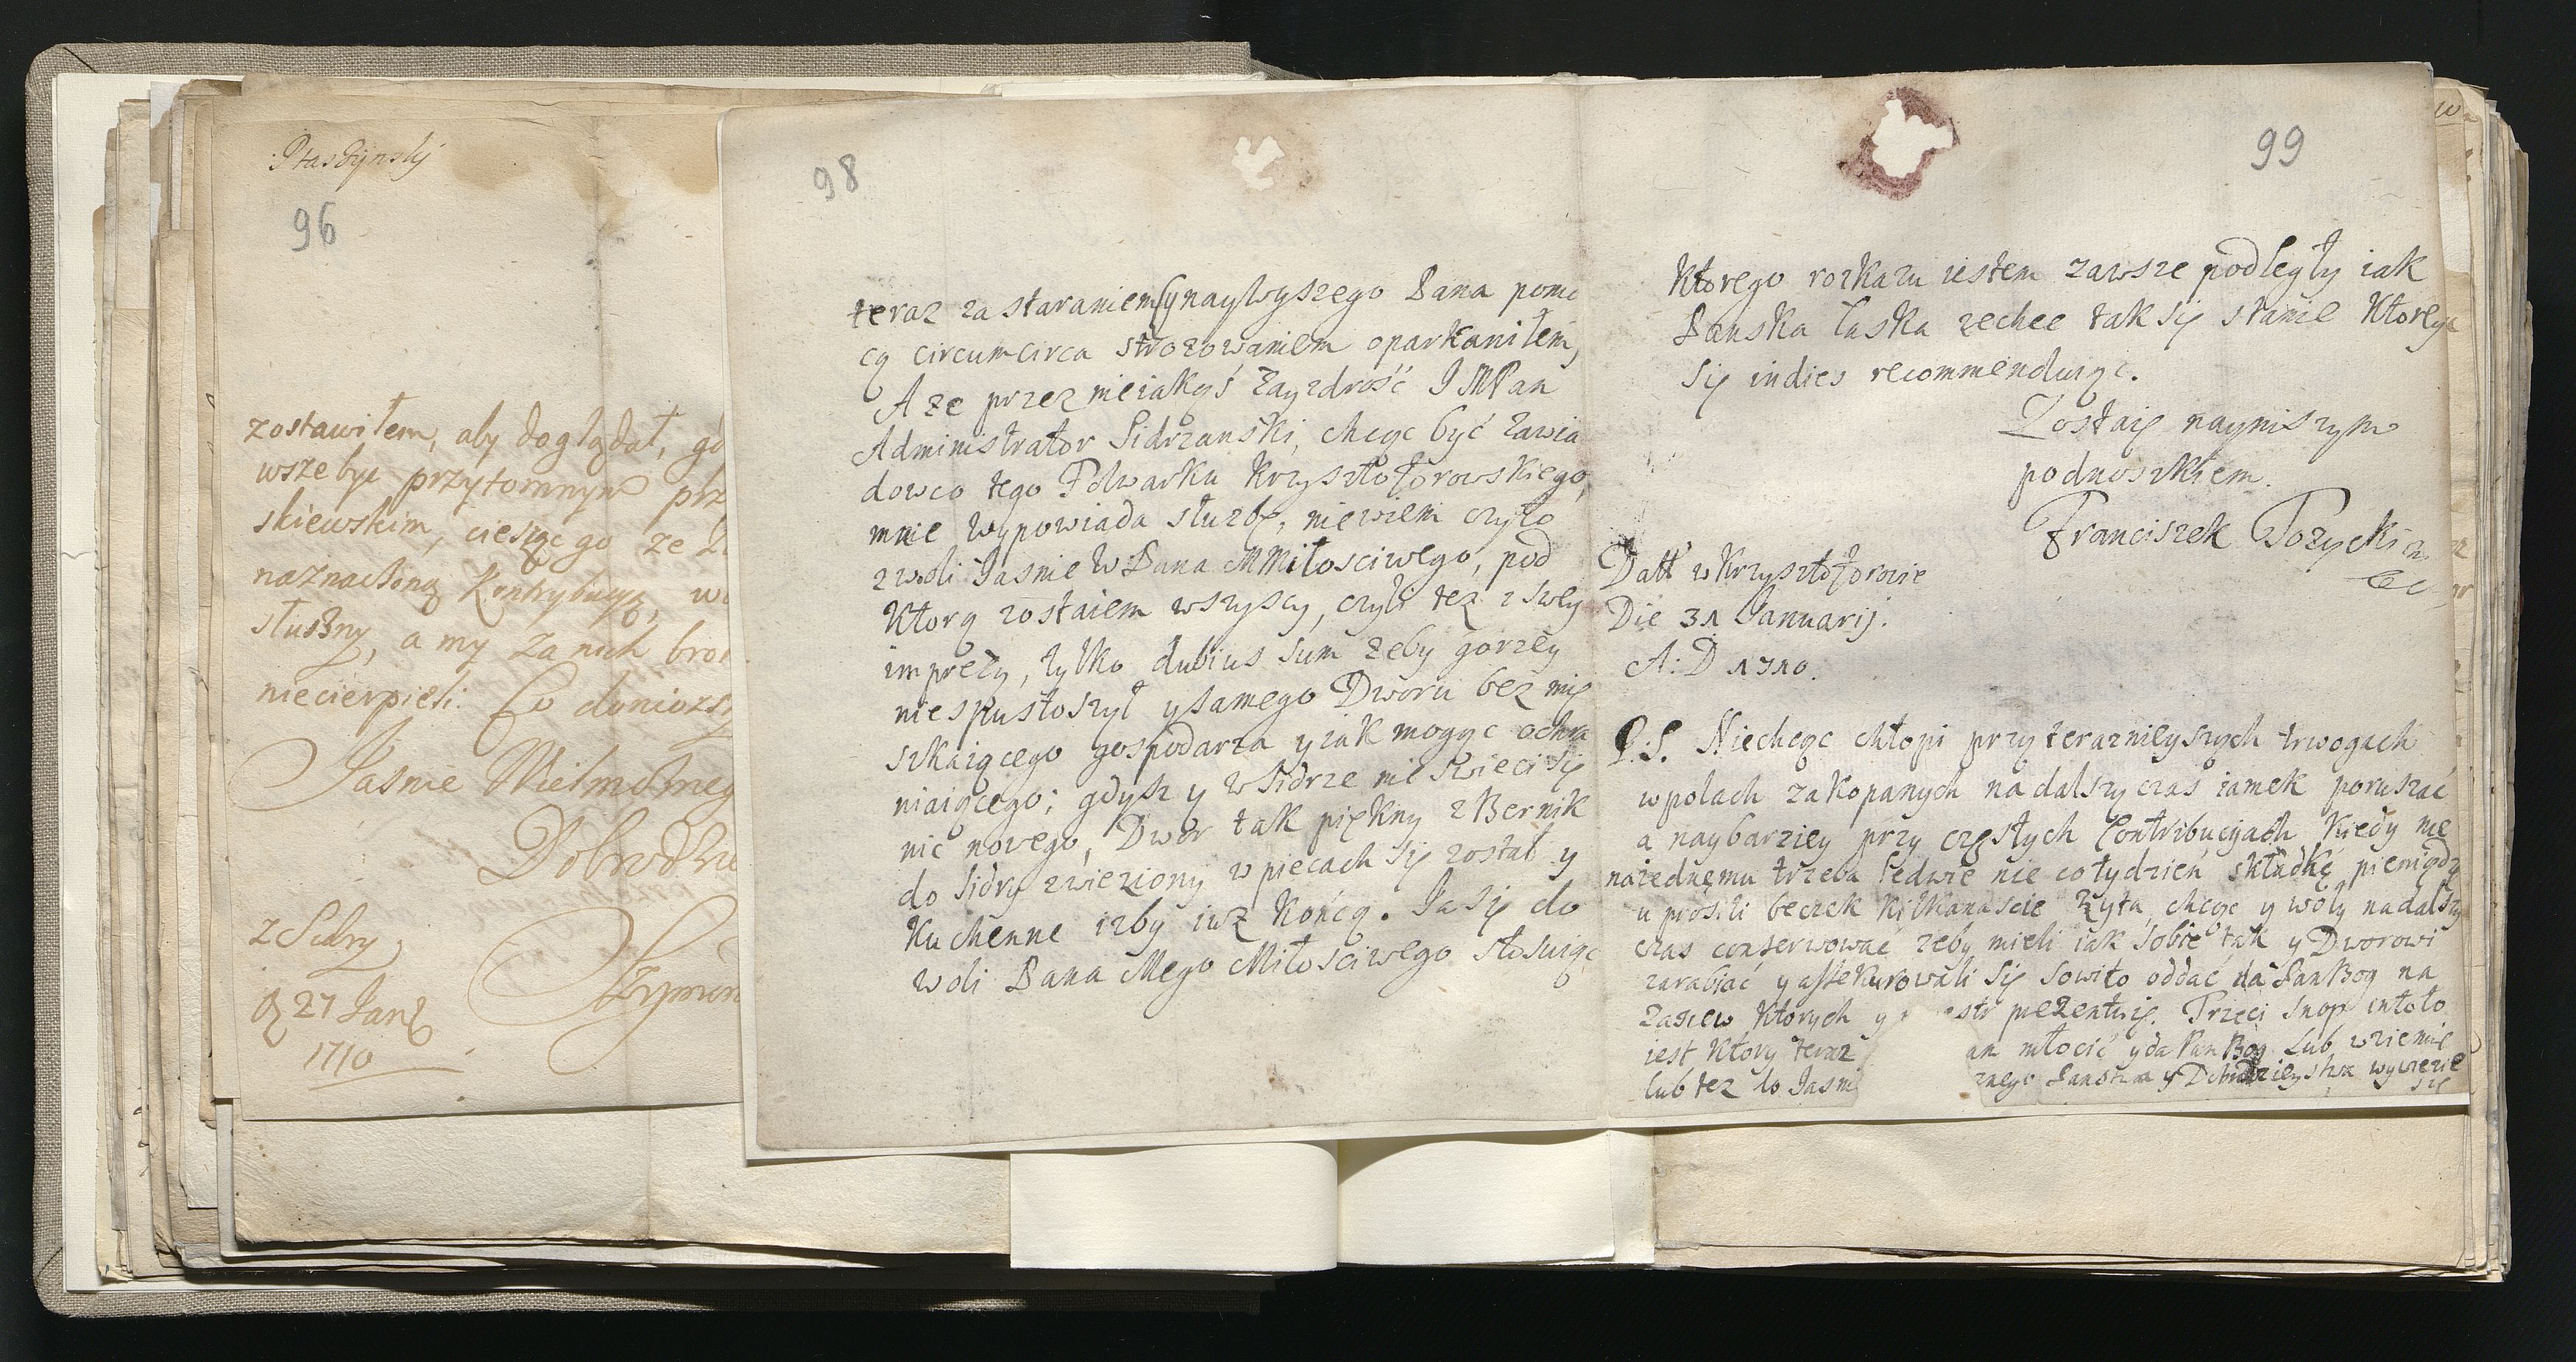 Ptaszÿnskÿ
96
zostawiłem, aby doglądał, gd
wsze był przytomnym prz
skiewskim, ciesząc go ze
naznaczoną Kontrybucyą, w
słuszny, a my za nich bron
niecierpieli. Co doniozszy
Jasnie Wielmożneg
Dobrodzie
z Sidry
d 27 Jan
1710
Szymon
98
teraz za staraniem y naywyszego Pana pomo
cą circumcirca strozowaniem oparkaniłem,
A ze przez nieiakąś Zayzdrość J M Pan
Administrator Sidrzanski, chcąc być Zawia
dowco tego Folwarku Krzysztoforowskiego,
mnie wypowiada służbę, niewiem czyto
z woli Jasnie W Pana M Miłosciwego, pod
Ktorą zostaiem wszyscy, czyli tez z swey
imprezy, tylko dubius sum zeby gorzey
niespustoszył y samego Dworu bez mię
szkaiącego gospodarza y iak mogąc ochra
niaiącego; gdysz y w Sidrze nie swieci się
nic nowego, Dwor tak piękny z Bernik
do Sidry zwieziony w piecach się został y
Kuchenne izby iuz Kończą. Ja się do
woli Pana Mego Miłosciwego stosuiąc
99
Ktorego rozkazu iestem zawsze podległy iak
Panska łaska zechce tak się stanie Ktorey
się indies recommenduiąc.
Zostaię nayniszym
podnoszkiem.
Franciszek Pozycki
Datt w Krzysztoforowie
Die 31 Januarij.
A: D 1710.
P.S. Niechcąc chłopi przy teraznieyszych trwogach
w polach zakopanych na dalszy czas iamek poruszać
a naybarziey przy częstych Contribucyach Kiedy nie
naiednemu trzeba ledwie nie co tydzień składkę pieniędzy
uprosili beczek Kilkanascie Zyta, chcąc y woły na dalszy
czas conserwować zeby mieli iak sobie tak y Dworowi
zarabiać y assekurowali się sowito oddać da Pan Bog na
Zasiew Ktorych y estr prezentuię. Trzeci snop in toto
iest Ktory teraz am młocić y da Pan Bog lub w ziemię
lub tez do Jasni znego Panstwa y Dobrodzieystwa wywiezie
się